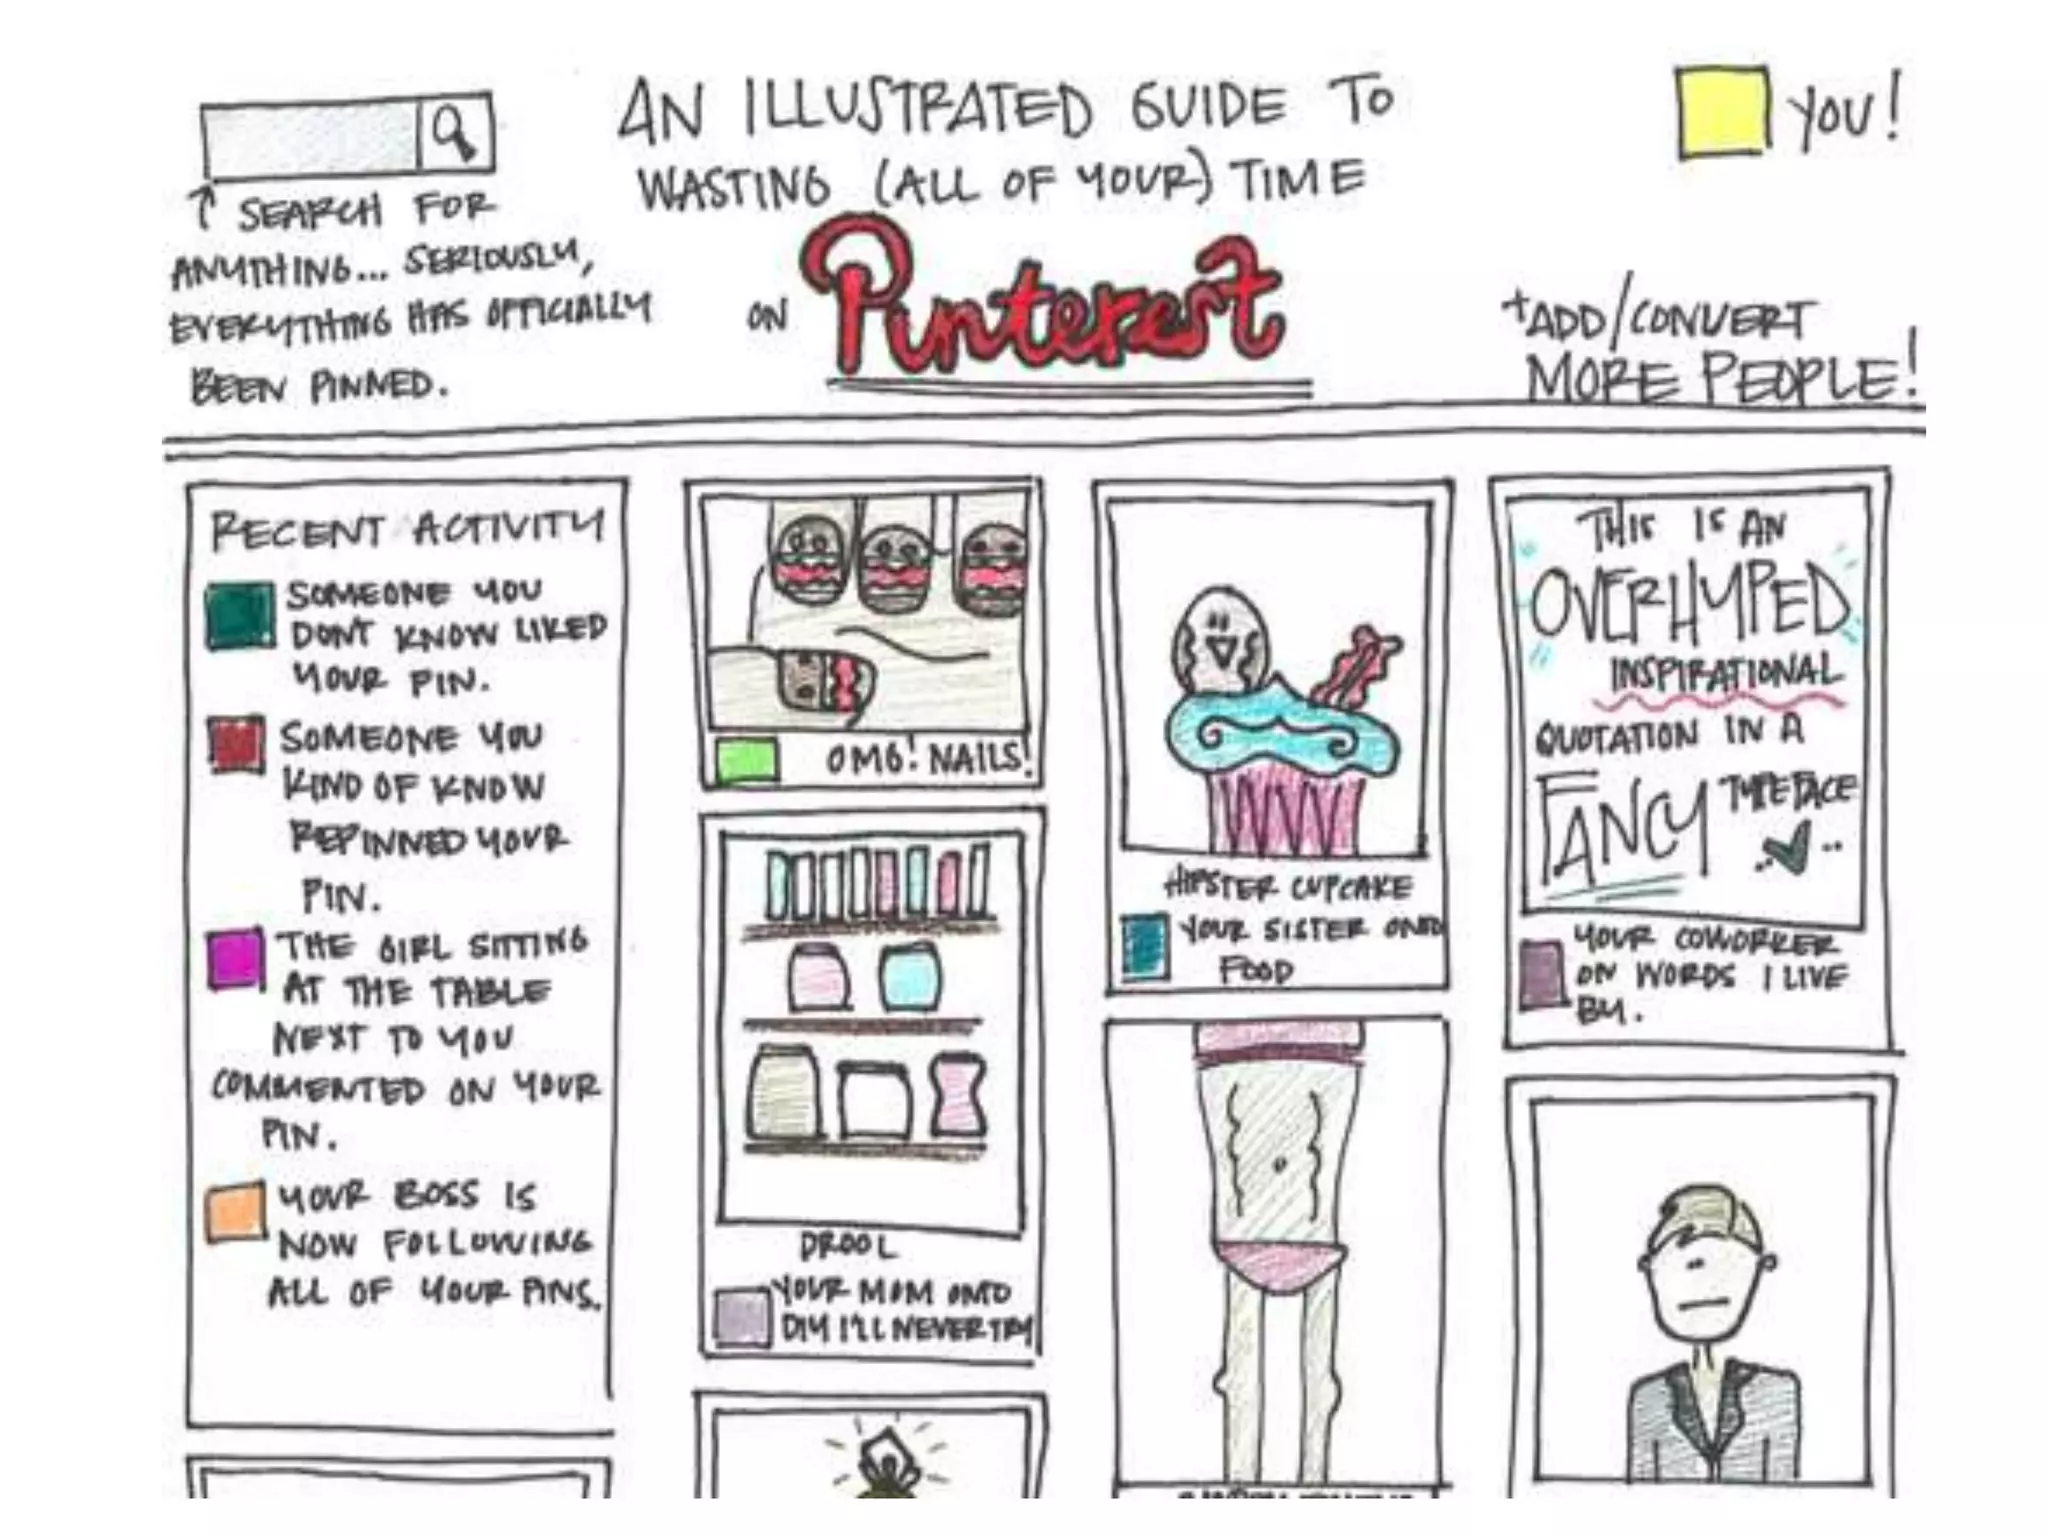 AN ILLUSTRATED GUIDE TO
WASTING (ALL OF YOUR) TIME
ON Pinterest
YOU!
↑ SEARCH FOR
ANYTHING... SERIOUSLY,
EVERYTHING HAS OFFICIALLY
BEEN PINNED.
+ADD/CONVERT
MORE PEOPLE!
RECENT ACTIVITY
SOMEONE YOU
DONT KNOW LIKED
YOUR PIN.
SOMEONE YOU
KIND OF KNOW
REPINNED YOUR
PIN.
THE GIRL SITTING
AT THE TABLE
NEXT TO YOU
COMMENTED ON YOUR
PIN.
YOUR BOSS IS
NOW FOLLOWING
ALL OF YOUR PINS.
OMG! NAILS!
DROOL
YOUR MOM ONTO
DIY I'LL NEVER TRY
HIPSTER CUPCAKE
YOUR SISTER ONTO
FOOD
THIS IS AN
OVERHYPED
INSPIRATIONAL
QUOTATION IN A
FANCY TYPEFACE
YOUR COWORKER
ON WORDS I LIVE
BY.